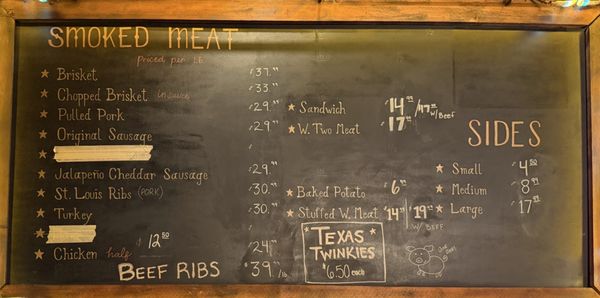 SMOKED MEAT
Priced per LB
Brisket $37.99
Chopped Brisket in sauce $33.99
Pulled Pork $29.99
Original Sausage $29.99
Jalapeño Cheddar Sausage $29.99
St. Louis Ribs (PORK) $30.99
Turkey $30.99
Chicken half $12.50 $24.99
BEEF RIBS $39.99/lb
Sandwich $14.99/$17.99 W/Beef
W. Two Meat $17.99
Baked Potato $6.99
Stuffed W. Meat $14.99/$19.99
W/ BEEF
TEXAS
TWINKIES
$6.50 each
SIDES
Small $4.50
Medium $8.99
Large $17.99